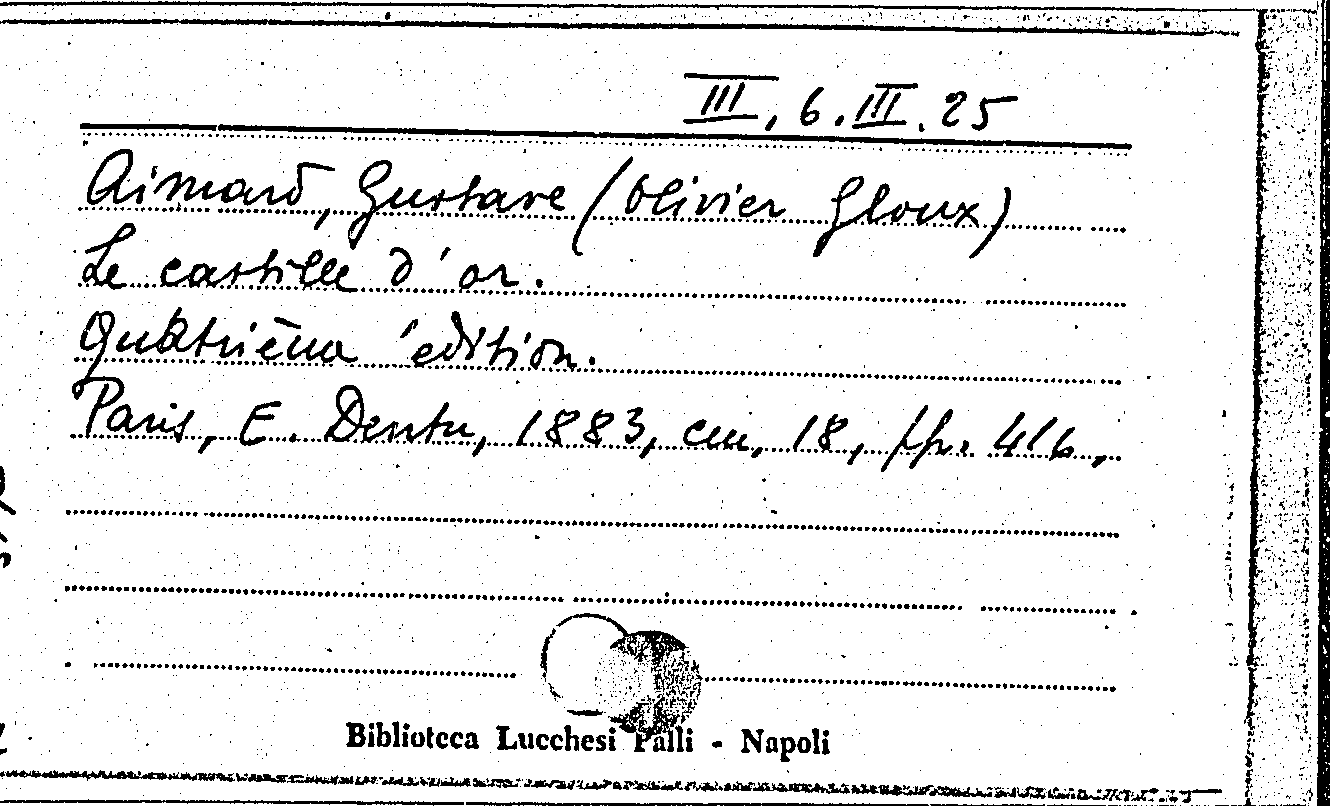 III, 6.III.25
Aimard, Gustave (Olivier Gloux)
Le castille d'or.
Quatrièma édition.
Paris, E. Dentu, 1883, cm, 18, pp. 416,
Biblioteca Lucchesi Palli - Napoli